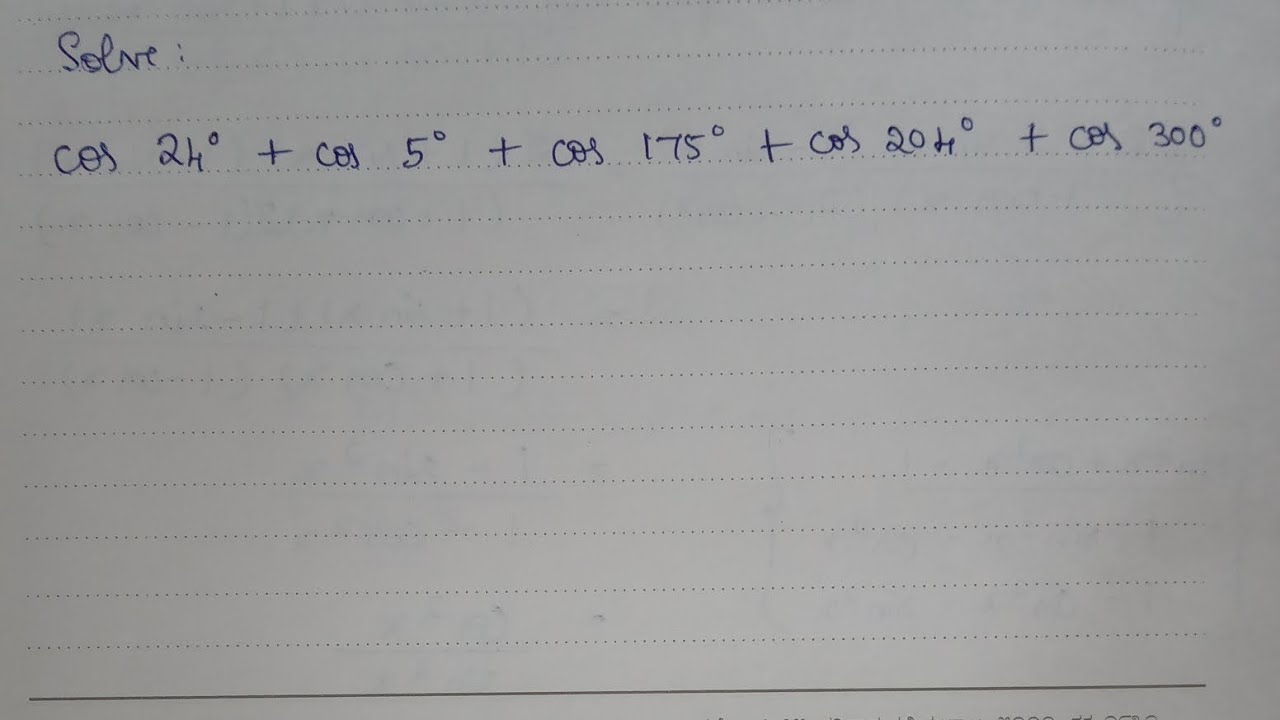 Solve :
cos 24° + cos 5° + cos 175° + cos 204° + cos 300°